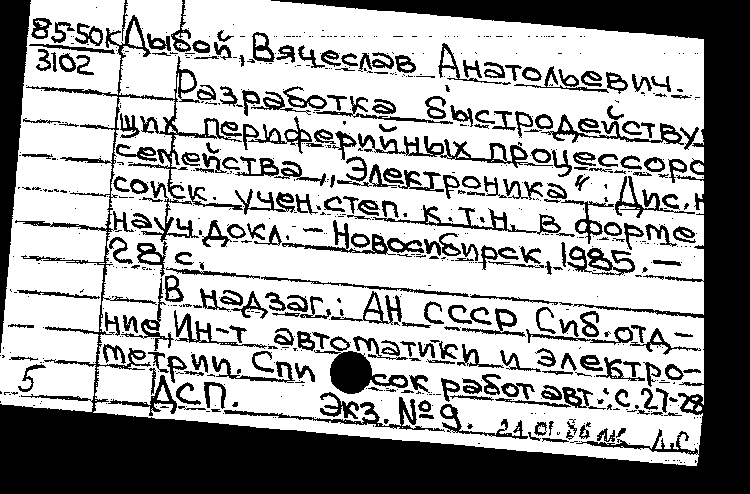 85-50к Дыбой, Вячеслав Анатольевич.
3102
Разработка быстродейству
щих периферийных процессоро
семейства „Электроника“: Дис.н
соиск. учен.степ. к.т.н. в форме
науч.докл. – Новосибирск, 1985. –
28 с.
В надзаг.: АН СССР, Сиб.отд-
ние, Ин-т автоматики и электро-
метрии. Спи сок работ авт.: с.27-28
5
ДСП. Экз. №9. 21.01.86 Л.С